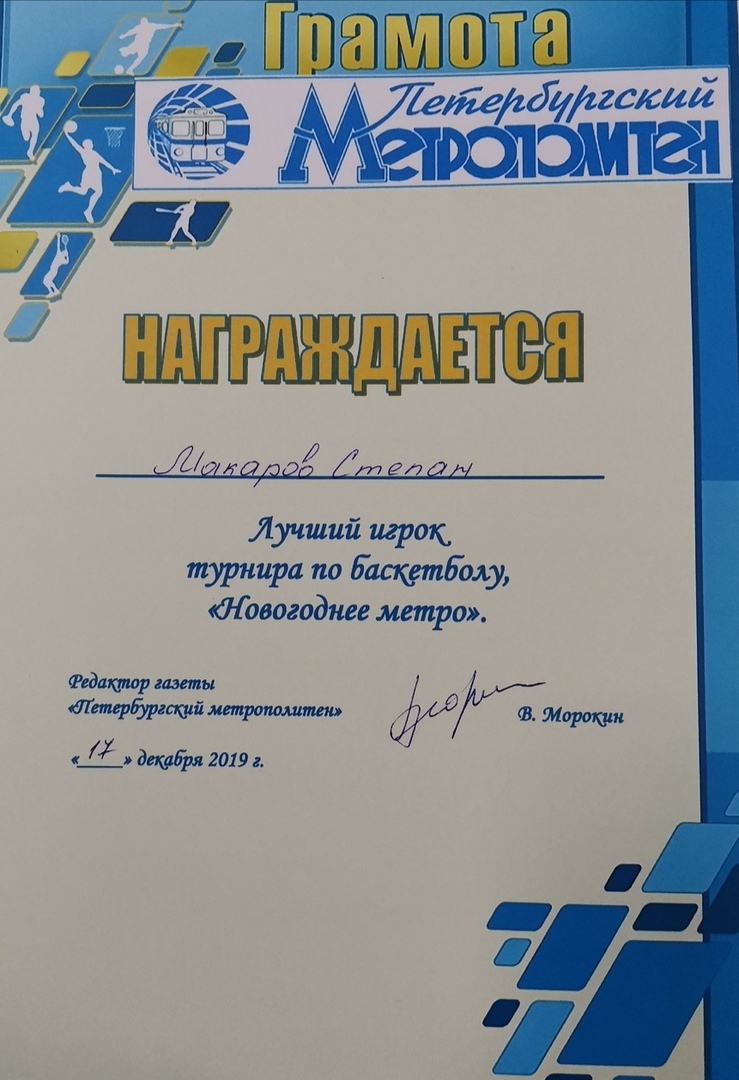 Грамота
Петербургский
Метрополитен
НАГРАЖДАЕТСЯ
Макаров Степан
Лучший игрок
турнира по баскетболу,
«Новогоднее метро».
Редактор газеты
«Петербургский метрополитен»
В. Морокин
«17» декабря 2019 г.